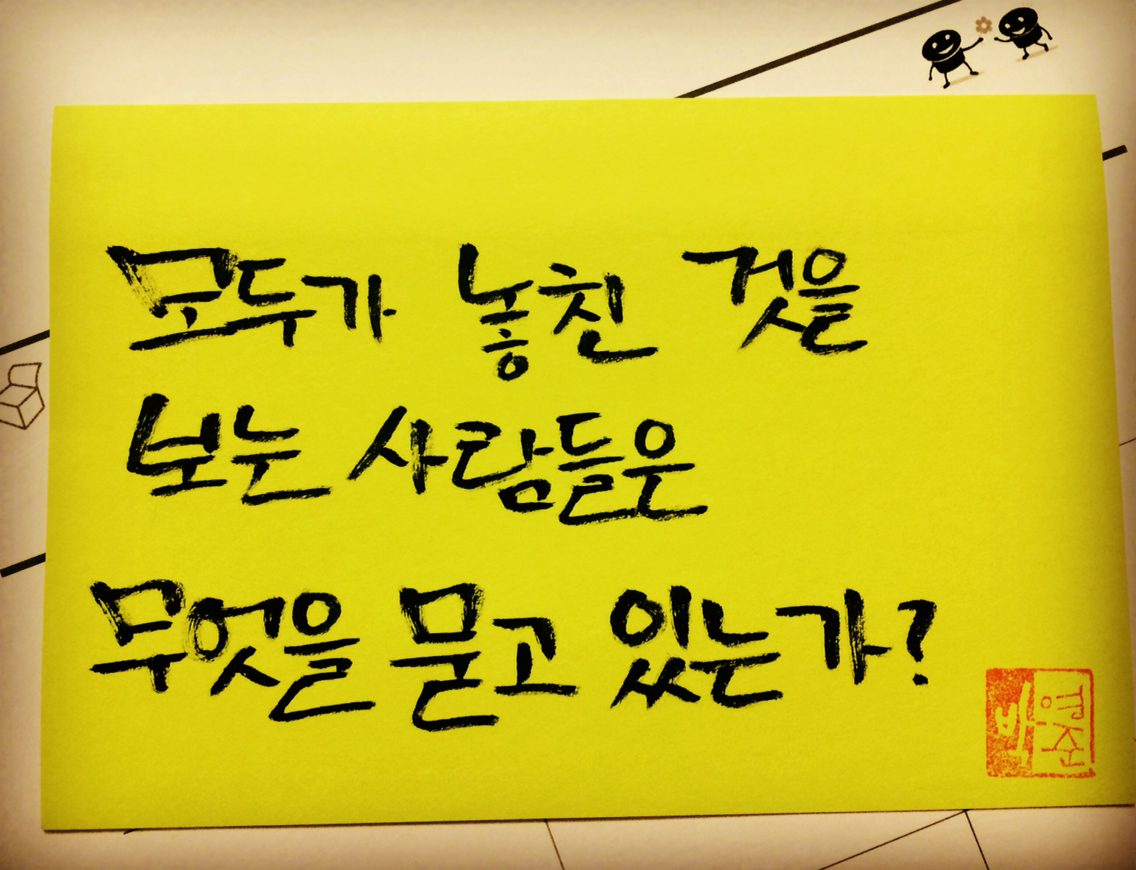 모두가 놓친 것을
보는 사람들은
무엇을 묻고 있는가?